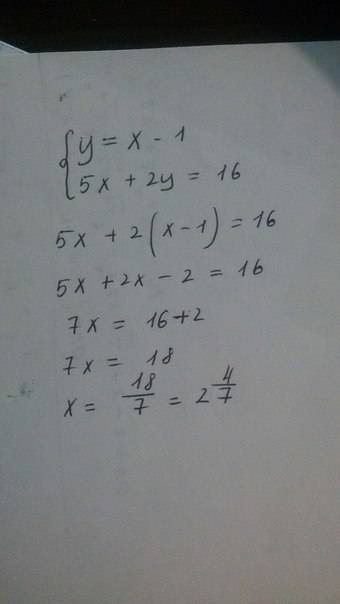 { y = x - 1
5x + 2y = 16
5x + 2(x-1) = 16
5x + 2x - 2 = 16
7x = 16+2
7x = 18
x = 18/7 = 2 4/7